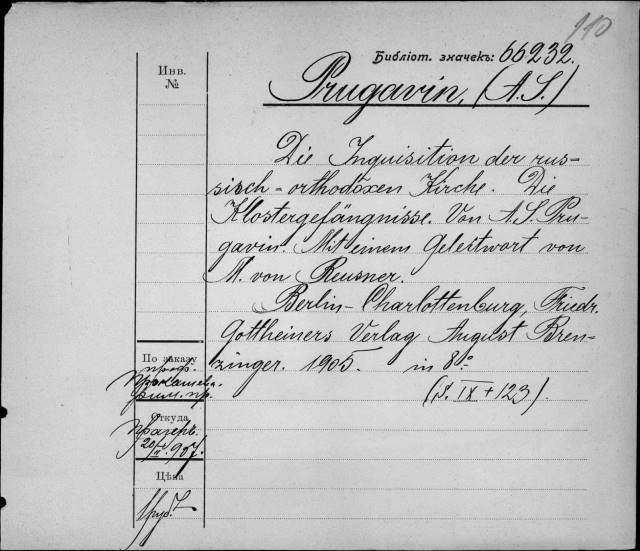 110
Библіот. значекъ: 66232.
Инв.
№
Prugavin, (A. S.)
Die Inquisition der rus-
sisch-orthodoxen Kirche. Die
Klostergefängnisse. Von A. S. Pru-
gavin. Mit einem Geleitwort von
M. von Reusner.
Berlin-Charlottenburg, Friedr.
Gottheiners Verlag August Bren-
zinger. 1905. in 8°.
(S. IX + 123)
По заказу
проф.
Откуда
Прагеръ
907.
Цѣна